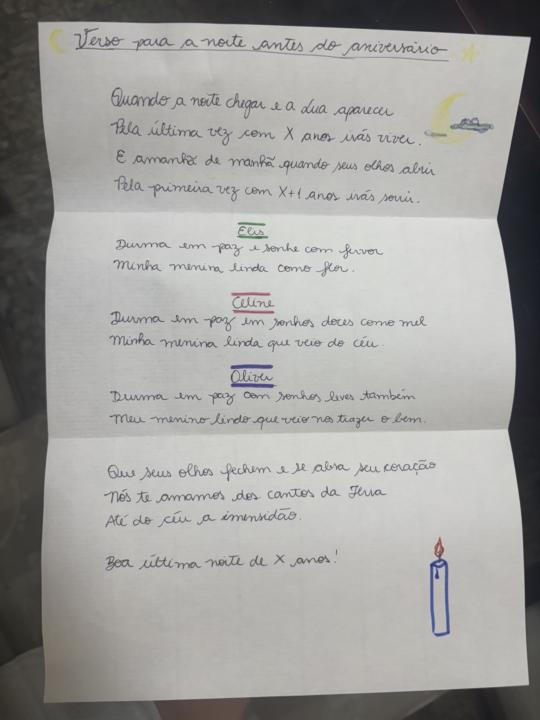 Verso para a noite antes do aniversário
Quando a noite chegar e a Lua aparecer
Pela última vez com X anos irás viver.
E amanhã de manhã quando seus olhos abrir
Pela primeira vez com X+1 anos irás sorrir.
Elis
Durma em paz e sonhe com fervor
Minha menina linda como flor.
Celine
Durma em paz em sonhos doces como mel
Minha menina linda que veio do céu.
Oliver
Durma em paz com sonhos leves também
Meu menino lindo que veio nos trazer o bem.
Que seus olhos fechem e se abra seu coração
Nós te amamos dos cantos da Terra
Até do céu a imensidão.
Boa última noite de X anos!